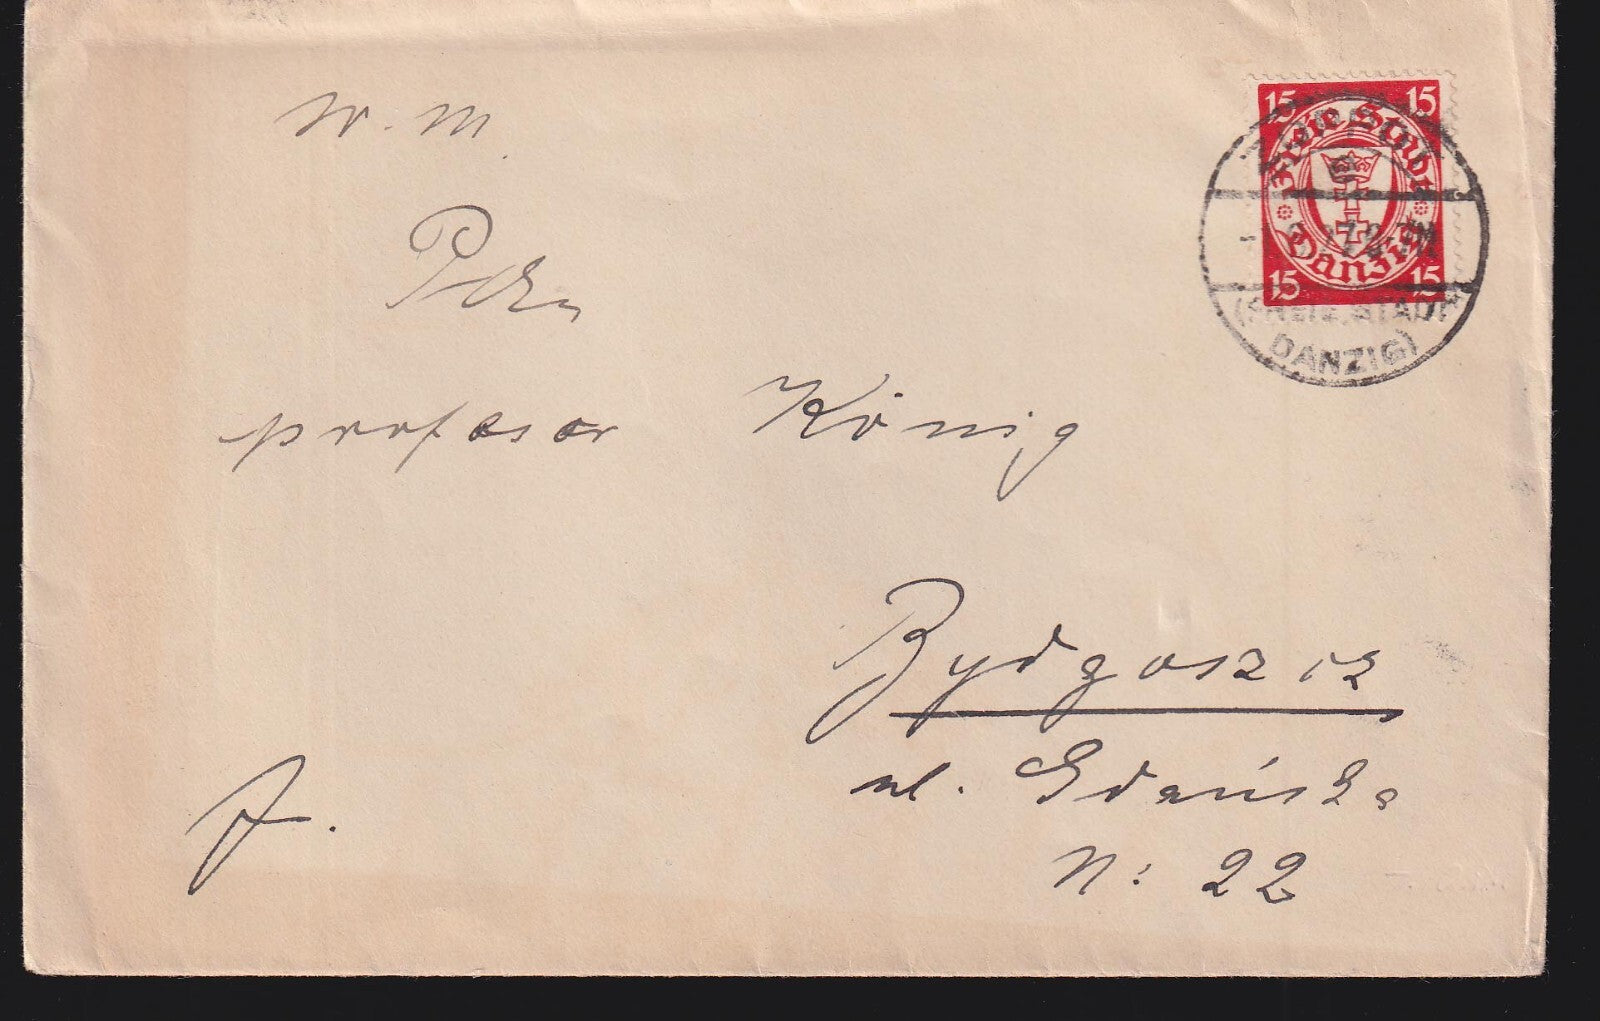 W. M.
15 15
Freie Stadt
Danzig
15 15
(FREIE STADT
DANZIG)
profesor König
Bydgoszcz
ul. Gdańska
N: 22